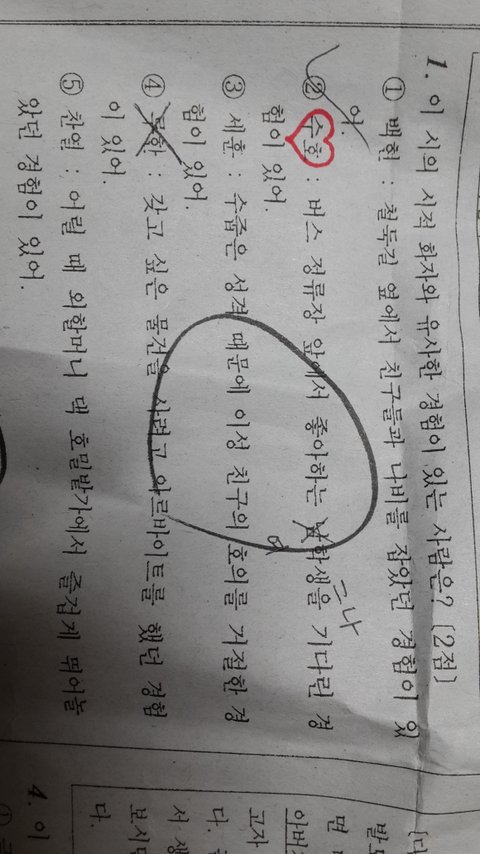 1. 이 시의 시적 화자와 유사한 경험이 있는 사람은? [2점]
① 백현 : 철둑길 옆에서 친구들과 나비를 잡았던 경험이 있
어.
② 수호 : 버스 정류장 앞에서 좋아하는 남학생을 기다린 경
험이 있어.
여
그나
③ 세훈 : 수줍은 성격 때문에 이성 친구의 호의를 거절한 경
험이 있어.
④ 루한 : 갖고 싶은 물건을 사려고 아르바이트를 했던 경험
이 있어.
⑤ 찬열 : 어릴 때 외할머니 댁 호밀밭가에서 즐겁게 뛰어놀
았던 경험이 있어.
4. 이